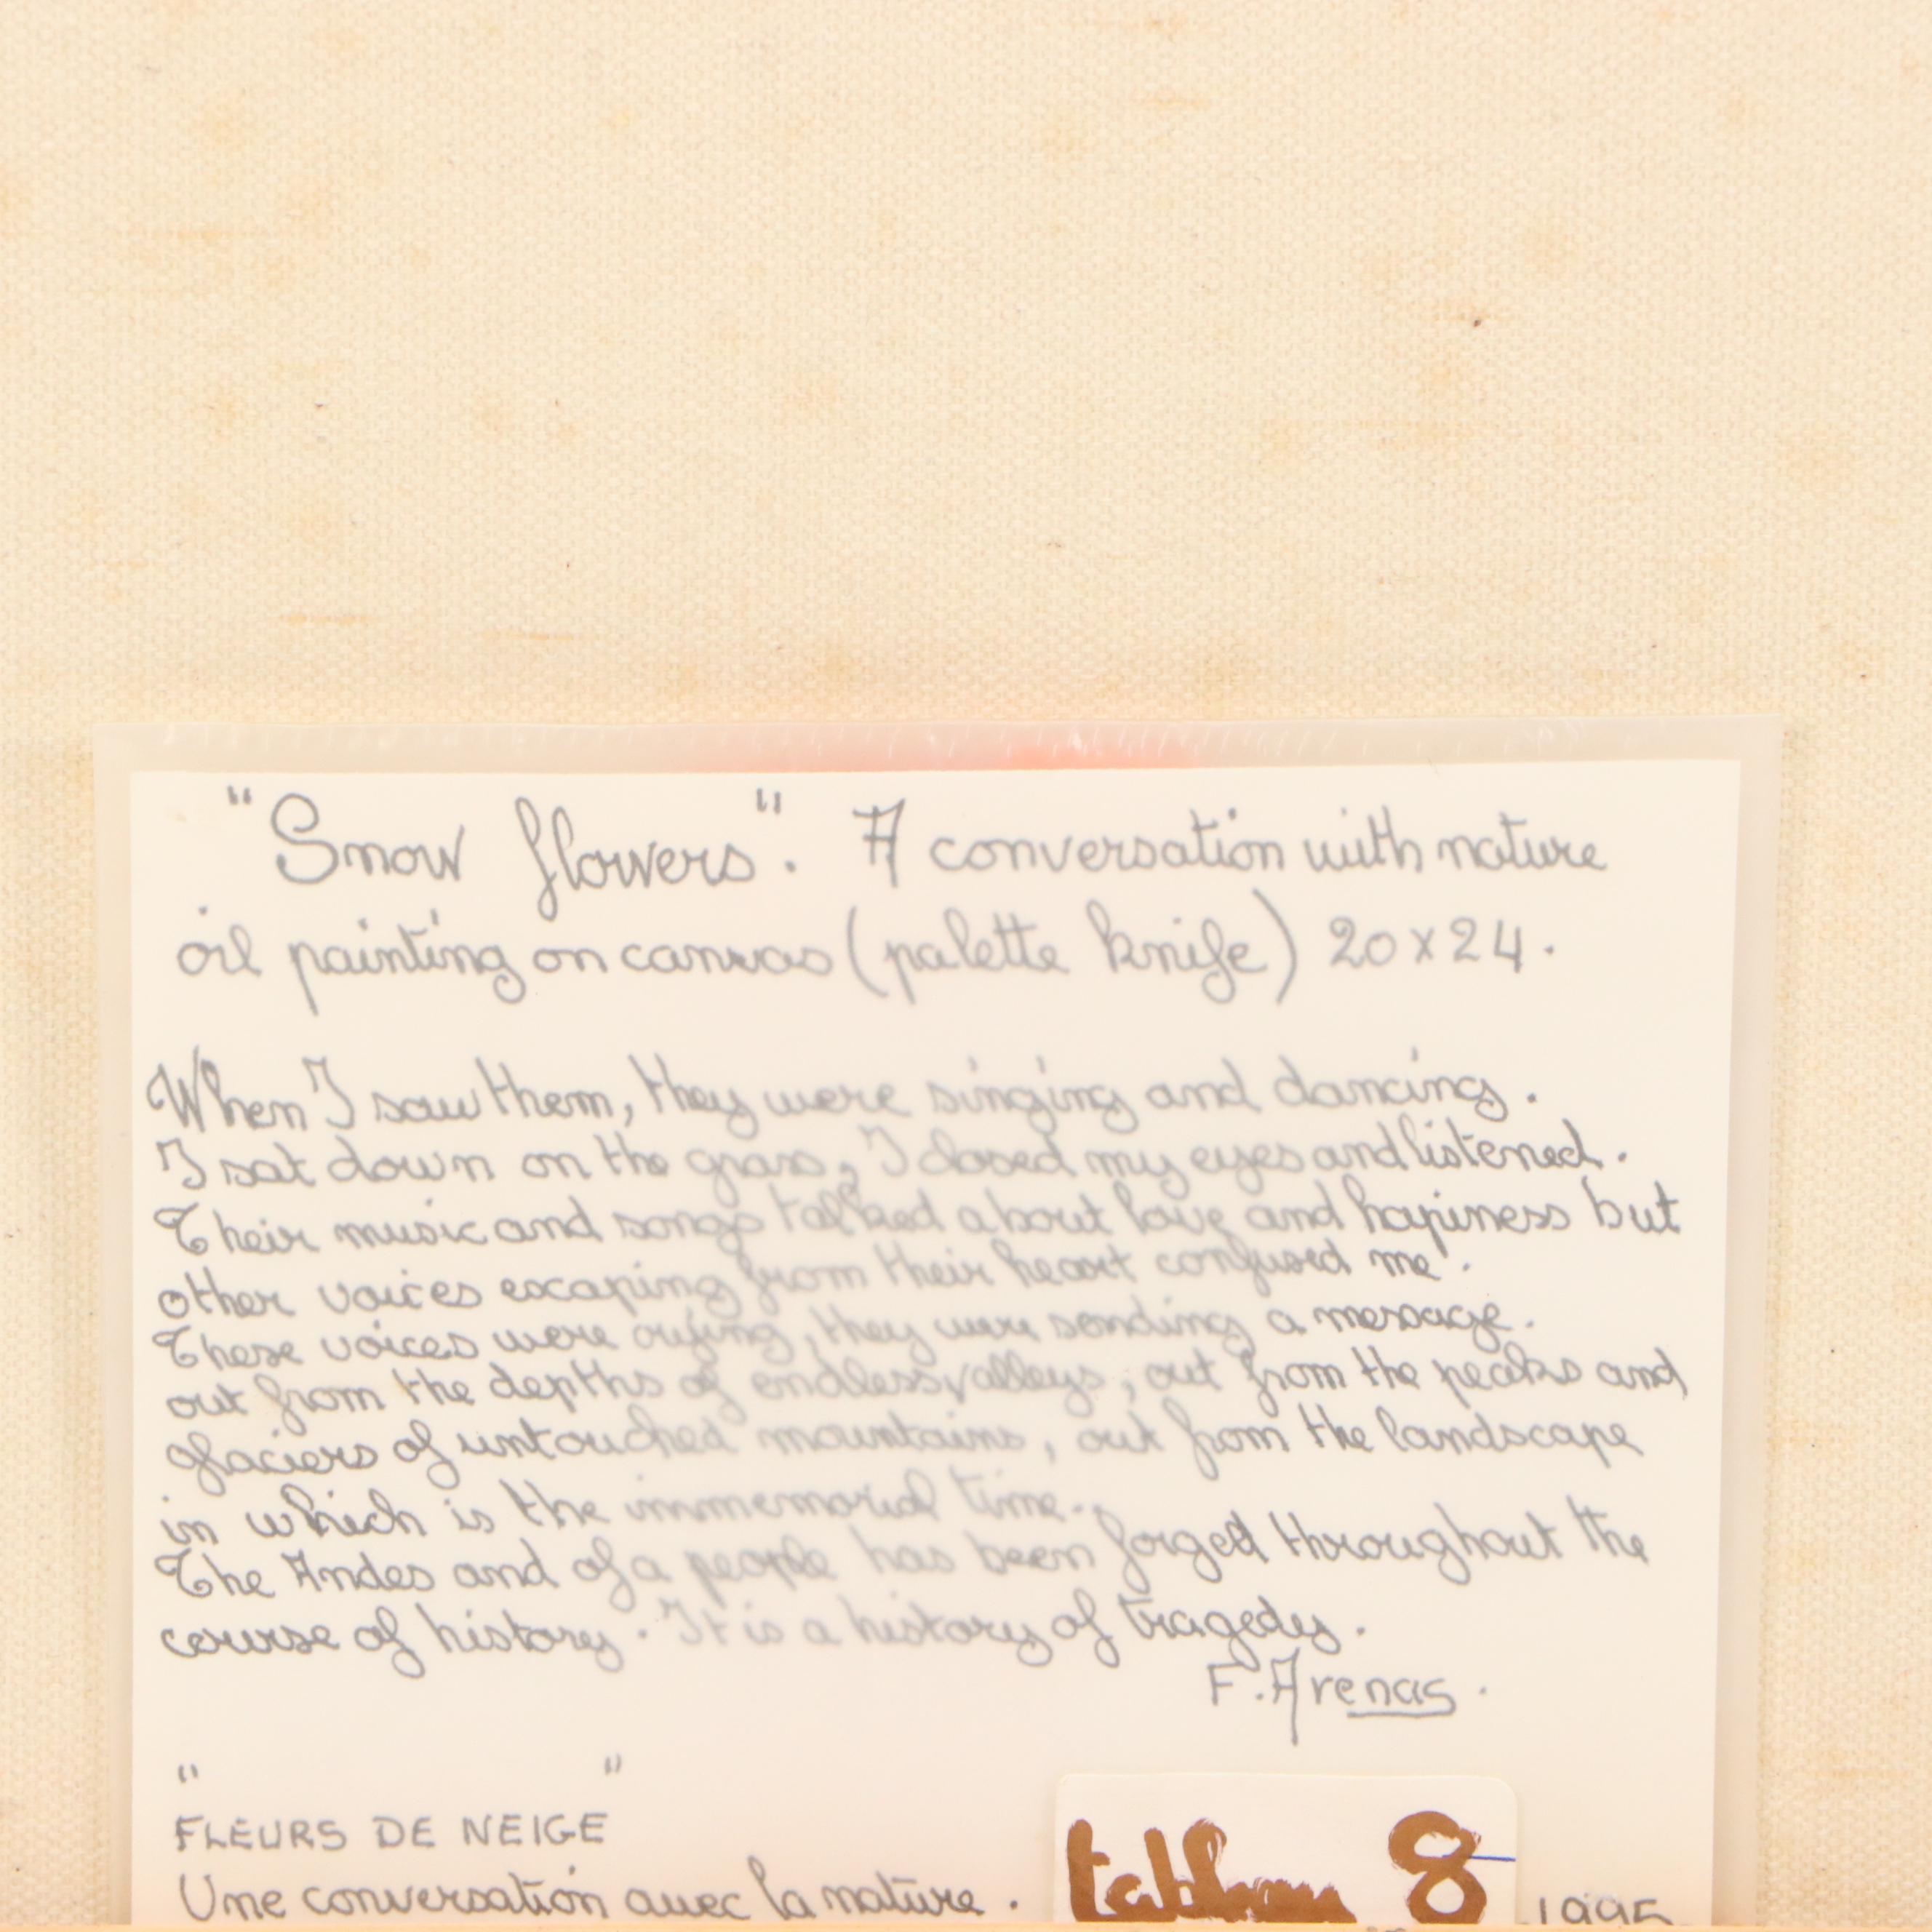 "Snow flowers". A conversation with nature
oil painting on canvas (palette knife) 20x24.
When I saw them, they were singing and dancing.
I sat down on the grass, I closed my eyes and listened.
Their music and songs talked about love and hapiness but
other voices escaping from their heart confused me.
These voices were crying, they were sending a message.
out from the depths of endless valleys, out from the peaks and
glaciers of untouched mountains, out from the landscape
in which is the immemorial time.
The Andes and of a people has been forged throughout the
course of history. It is a history of tragedy.
F. Arenas.
"FLEURS DE NEIGE"
Une conversation avec la nature.
tableau 8
1995